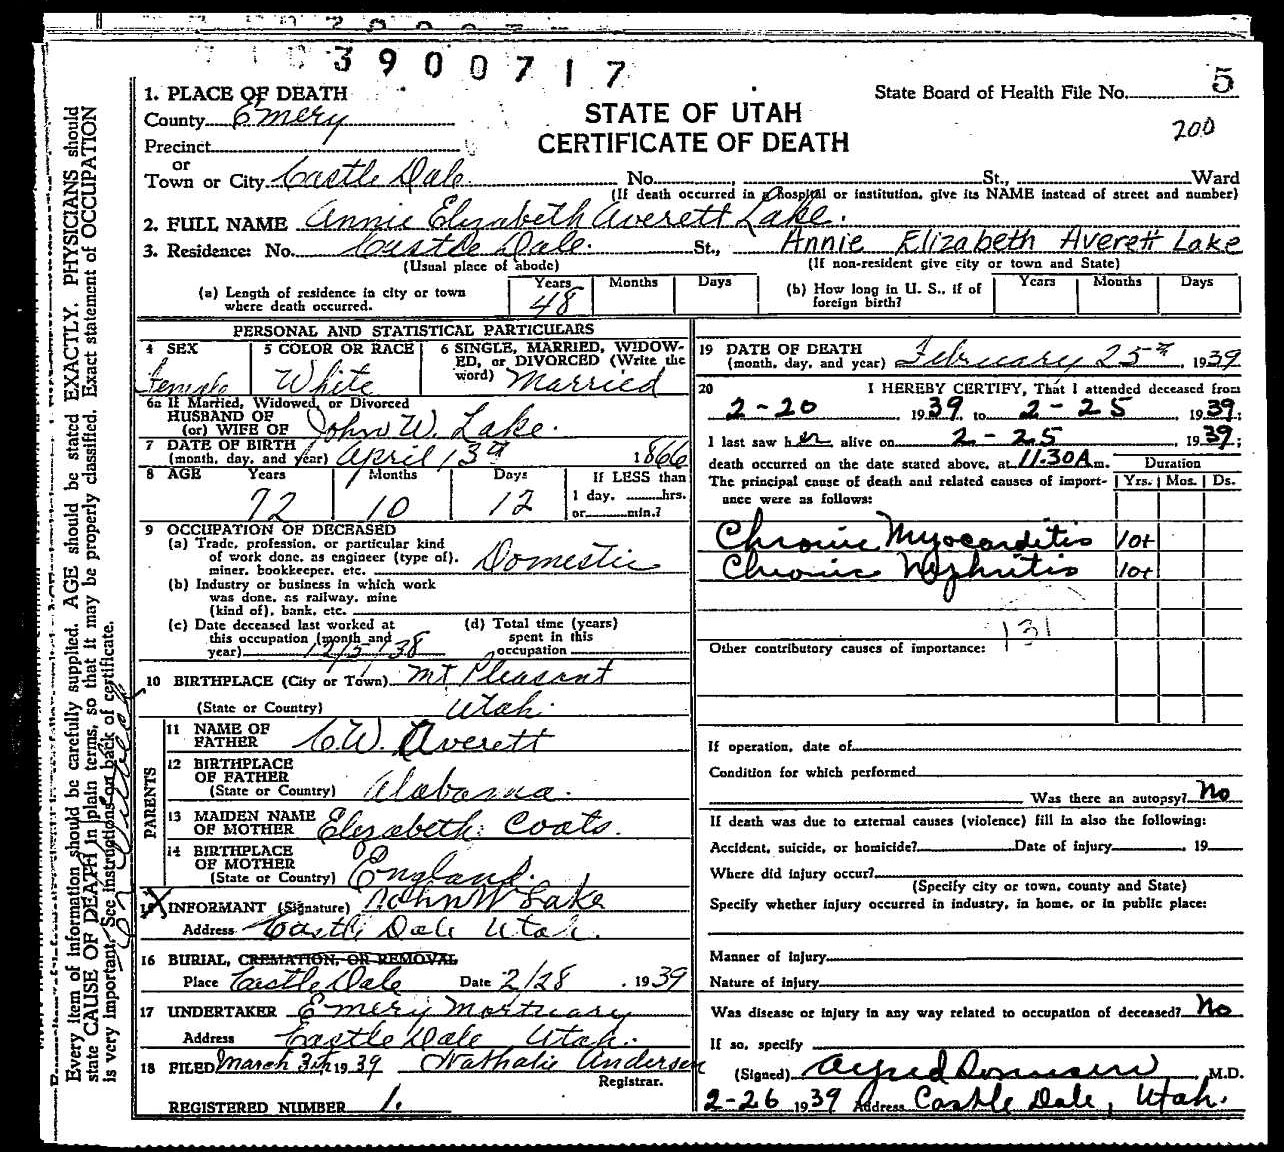 3900717
5
1. PLACE OF DEATH
State Board of Health File No.
County Emery
STATE OF UTAH
200
CERTIFICATE OF DEATH
Precinct
or
Town or City Castle Dale No. , St., Ward
(If death occurred in a hospital or institution, give its NAME instead of street and number)
2. FULL NAME Annie Elizabeth Averett Lake.
3. Residence: No. Castle Dale. St., Annie Elizabeth Averett Lake
(Usual place of abode) (If non-resident give city or town and State)
(a) Length of residence in city or town where death occurred. Years 48 Months Days
(b) How long in U. S., if of foreign birth? Years Months Days
PERSONAL AND STATISTICAL PARTICULARS
4 SEX Female
5 COLOR OR RACE White
6 SINGLE, MARRIED, WIDOW-
ED, or DIVORCED (Write the
word) Married
6a If Married, Widowed, or Divorced
HUSBAND OF
(or) WIFE OF John W. Lake.
7 DATE OF BIRTH
(month, day, and year) April 13th 1866
8 AGE Years Months Days If LESS than
72 10 12 1 day, hrs.
or min.?
9 OCCUPATION OF DECEASED
(a) Trade, profession, or particular kind
of work done, as engineer (type of),
miner, bookkeeper, etc. Domestic
(b) Industry or business in which work
was done, as railway, mine
(kind of), bank, etc.
(c) Date deceased last worked at
this occupation (month and
year) 12/5/38
(d) Total time (years)
spent in this
occupation
10 BIRTHPLACE (City or Town) Mt Pleasant
(State or Country) Utah.
PARENTS
11 NAME OF
FATHER C.W. Averett
12 BIRTHPLACE
OF FATHER
(State or Country) Alabama.
13 MAIDEN NAME
OF MOTHER Elizabeth Coats.
14 BIRTHPLACE
OF MOTHER
(State or Country) England.
15 INFORMANT (Signature) John W Lake
Address Castle Dale Utah.
16 BURIAL, CREMATION, OR REMOVAL
Place Castle Dale Date 2/28 , 1939
17 UNDERTAKER Emery Mortuary
Address Castle Dale Utah.
18 FILED March 3th 1939 Nathalie Andersen
Registrar.
REGISTERED NUMBER 1.
19 DATE OF DEATH
(month, day, and year) February 25th , 1939
20 I HEREBY CERTIFY, That I attended deceased from
2-20 1939, to 2-25 1939;
I last saw her alive on 2-25 , 1939;
death occurred on the date stated above, at 11.30 A m. Duration
The principal cause of death and related causes of import- Yrs. Mos. Ds.
ance were as follows:
Chronic Myocarditis 10+
Chronic Nephritis 10+
131
Other contributory causes of importance:
If operation, date of
Condition for which performed
Was there an autopsy? No
If death was due to external causes (violence) fill in also the following:
Accident, suicide, or homicide? Date of injury , 19
Where did injury occur?
(Specify city or town, county and State)
Specify whether injury occurred in industry, in home, or in public place:
Manner of injury
Nature of injury
Was disease or injury in any way related to occupation of deceased? No
If so, specify
(Signed) Alfred , M.D.
2-26 1939 Address Castle Dale, Utah.
Every item of information should be carefully supplied. AGE should be stated EXACTLY. PHYSICIANS should
state CAUSE OF DEATH in plain terms, so that it may be properly classified. Exact statement of OCCUPATION
is very important. See instructions on back of certificate.